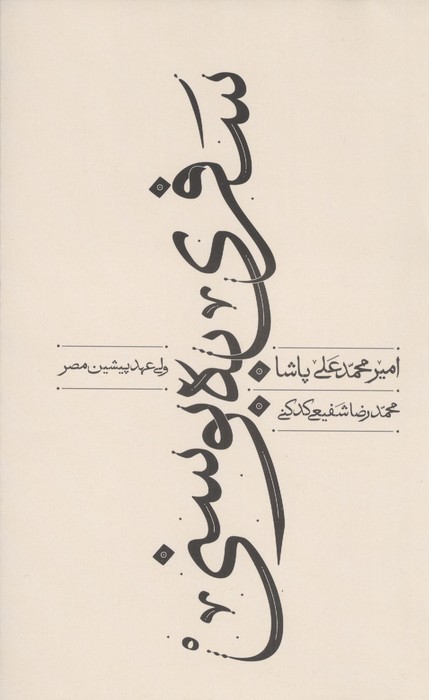 سفری بوسنی
امیر محمّد عَلی پاشا
ولی عهد پیشین مصر
محمّدرضا شَفیعی کدکنی